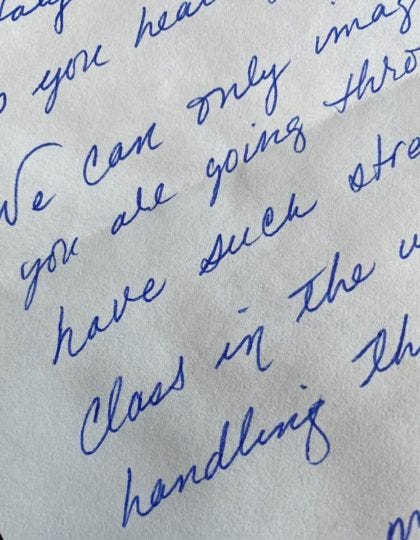 you hea
We can only imag
you are going thro
have such stre
Class in the w
handling th